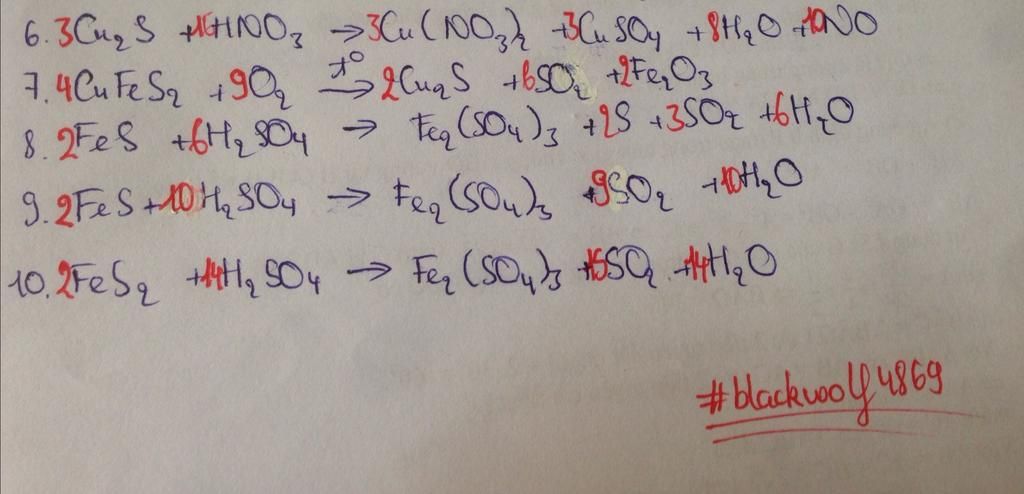 6. 3Cu₂S + 16HNO₃ → 3Cu(NO₃)₂ + 3CuSO₄ + 8H₂O + 10NO
7. 4CuFeS₂ + 9O₂ t° → 2Cu₂S + 6SO₂ + 2Fe₂O₃
8. 2FeS + 6H₂SO₄ → Fe₂(SO₄)₃ + 2S + 3SO₂ + 6H₂O
9. 2FeS + 10H₂SO₄ → Fe₂(SO₄)₃ + 9SO₂ + 10H₂O
10. 2FeS₂ + 14H₂SO₄ → Fe₂(SO₄)₃ + 15SO₂ + 14H₂O
#blackwolf4869